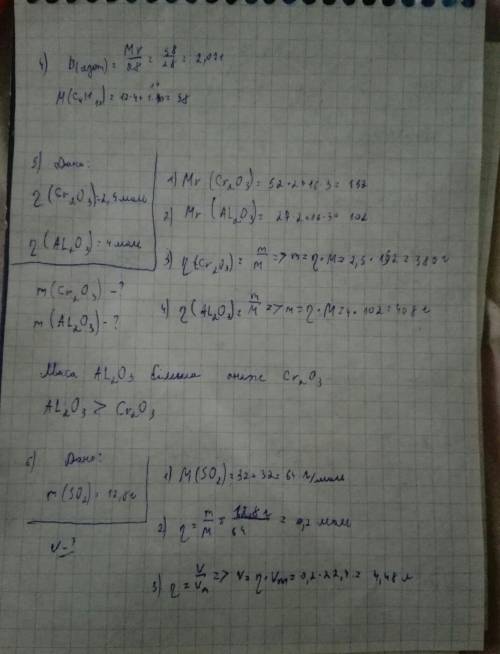 4) D(азот) = Mr/28 = 58/28 = 2,071
M(C4H10) = 12·4 + 1·10 = 58
5) Дано:
η(Cr2O3) = 2,5 моль
η(AL2O3) = 4 моль
m(Cr2O3) - ?
m(AL2O3) - ?
1) Mr(Cr2O3) = 52·2+16·3 = 152
2) Mr(AL2O3) = 27·2+16·3= 102
3) η(Cr2O3) = m/M => m = η·M = 2,5·152 = 380 г
4) η(AL2O3) = m/M => m = η·M = 4·102 = 408 г
Маса AL2O3 більша Cr2O3
AL2O3 > Cr2O3
6) Дано:
m(SO2) = 12,8 г
V - ?
1) M(SO2) = 32+32 = 64 г/моль
2) η = m/M = 12,8 г/64 = 0,2 моль
3) η = V/Vm => V = η·Vm = 0,2·22,4 = 4,48 л